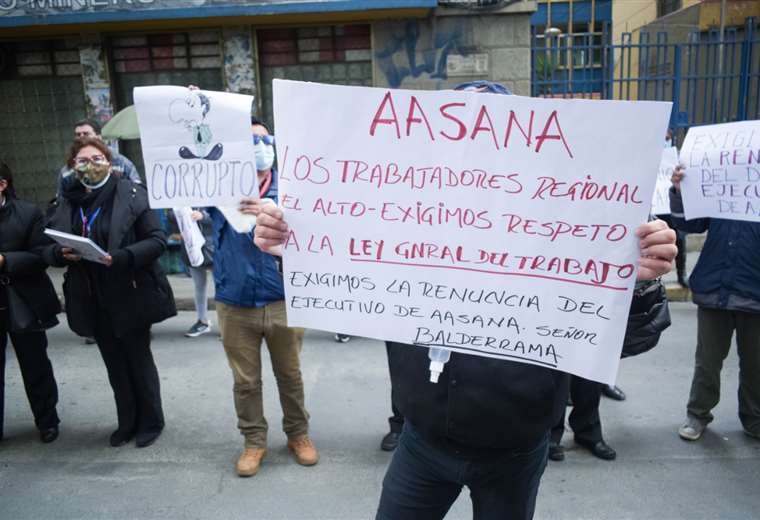 O MINERO
CORRUPTO
AASANA
LOS TRABAJADORES REGIONAL
EL ALTO-EXIGIMOS RESPETO
A LA LEY GNRAL DEL TRABAJO
EXIGIMOS LA RENUNCIA DEL
EJECUTIVO DE AASANA. SEÑOR
BALDERRAMA
EXIGIMO
LA REN
DEL
EJECUTI
DE A